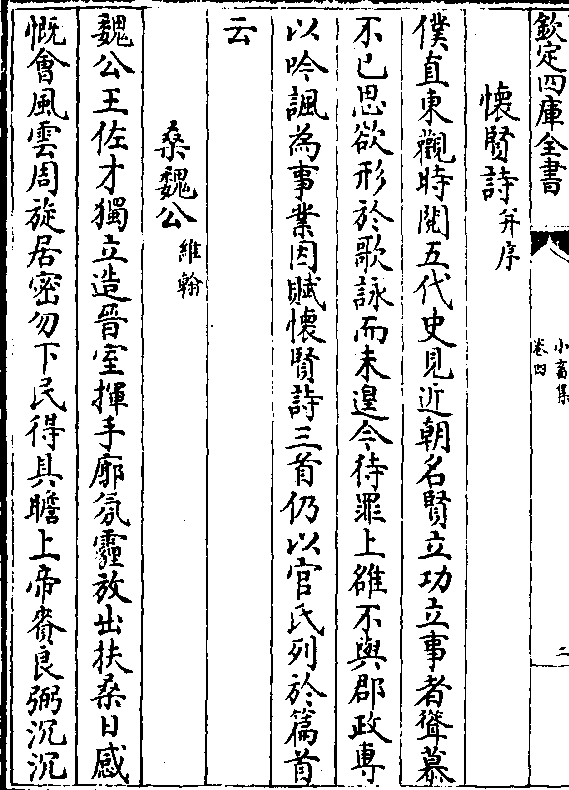 欽定四庫全書
小畜集
卷四
二
懷賢詩并序
僕直東觀時閱五代史見近朝名賢立功立事者聳慕
不已思欲形於歌詠而未遑今待罪上雒不與郡政專
以吟諷為事業因賦懷賢詩三首仍以官氏列於篇首
云
桑魏公維翰
魏公王佐才獨立造晉室揮手廓氛霾放出扶桑日感
慨會風雲周旋居密勿下民得具瞻上帝賚良弼沉沉